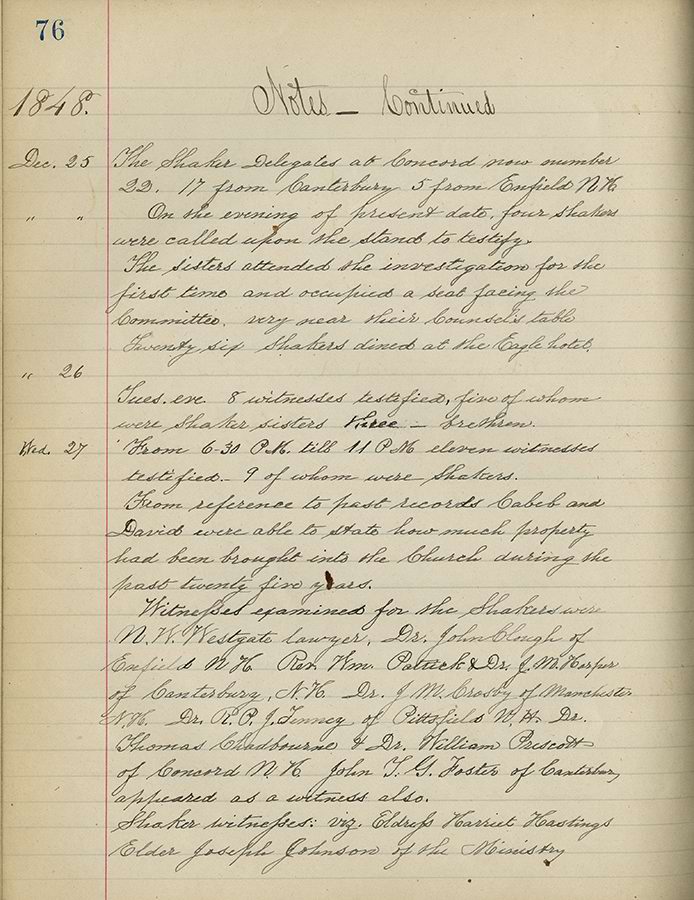 76
Notes — Continued
1848.
Dec. 25 The Shaker Delegates at Concord now number
22. 17 from Canterbury 5 from Enfield N.H.
" " On the evening of present date, four Shakers
were called upon the stand to testify.
The sisters attended the investigation for the
first time and occupied a seat facing the
Committee. very near their Counsel's table
Twenty six Shakers dined at the Eagle hotel.
" 26
Tues. eve. 8 witnesses testified, five of whom
were Shaker sisters three — brethren.
Wed. 27 From 6-30 P.M. till 11 P.M. eleven witnesses
testified — 9 of whom were Shakers.
From reference to past records Cabeb and
David were able to state how much property
had been brought into the Church during the
past twenty five years.
Witnesses examined for the Shakers were
N. W. Westgate lawyer, Dr. John Clough of
Enfield N.H. Rev. Wm. Patrick & Dr. J. M. Harper
of Canterbury, N.H. Dr. J M. Crosby of Manchester
N.H. Dr. R. P. J. Tenney of Pittsfield N.H. Dr.
Thomas Chadbourne & Dr. William Prescott
of Concord N.H. John T. G. Foster of Canterbury
appeared as a witness also.
Shaker witnesses: viz. Eldress Harriet Hastings
Elder Joseph Johnson of the Ministry